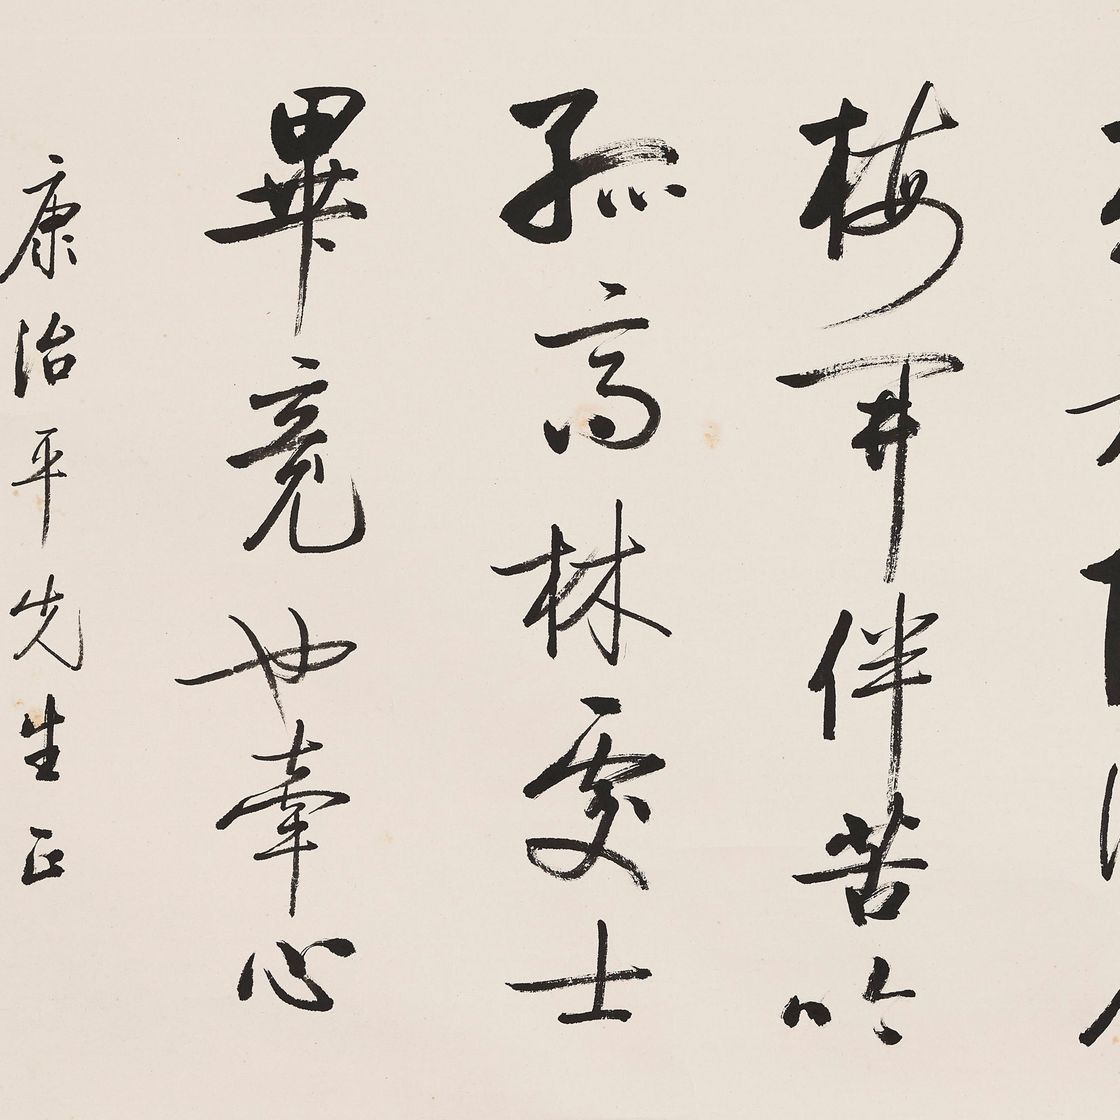 梅開伴苦吟
孤高林處士
畢竟也牽心
康治平先生正